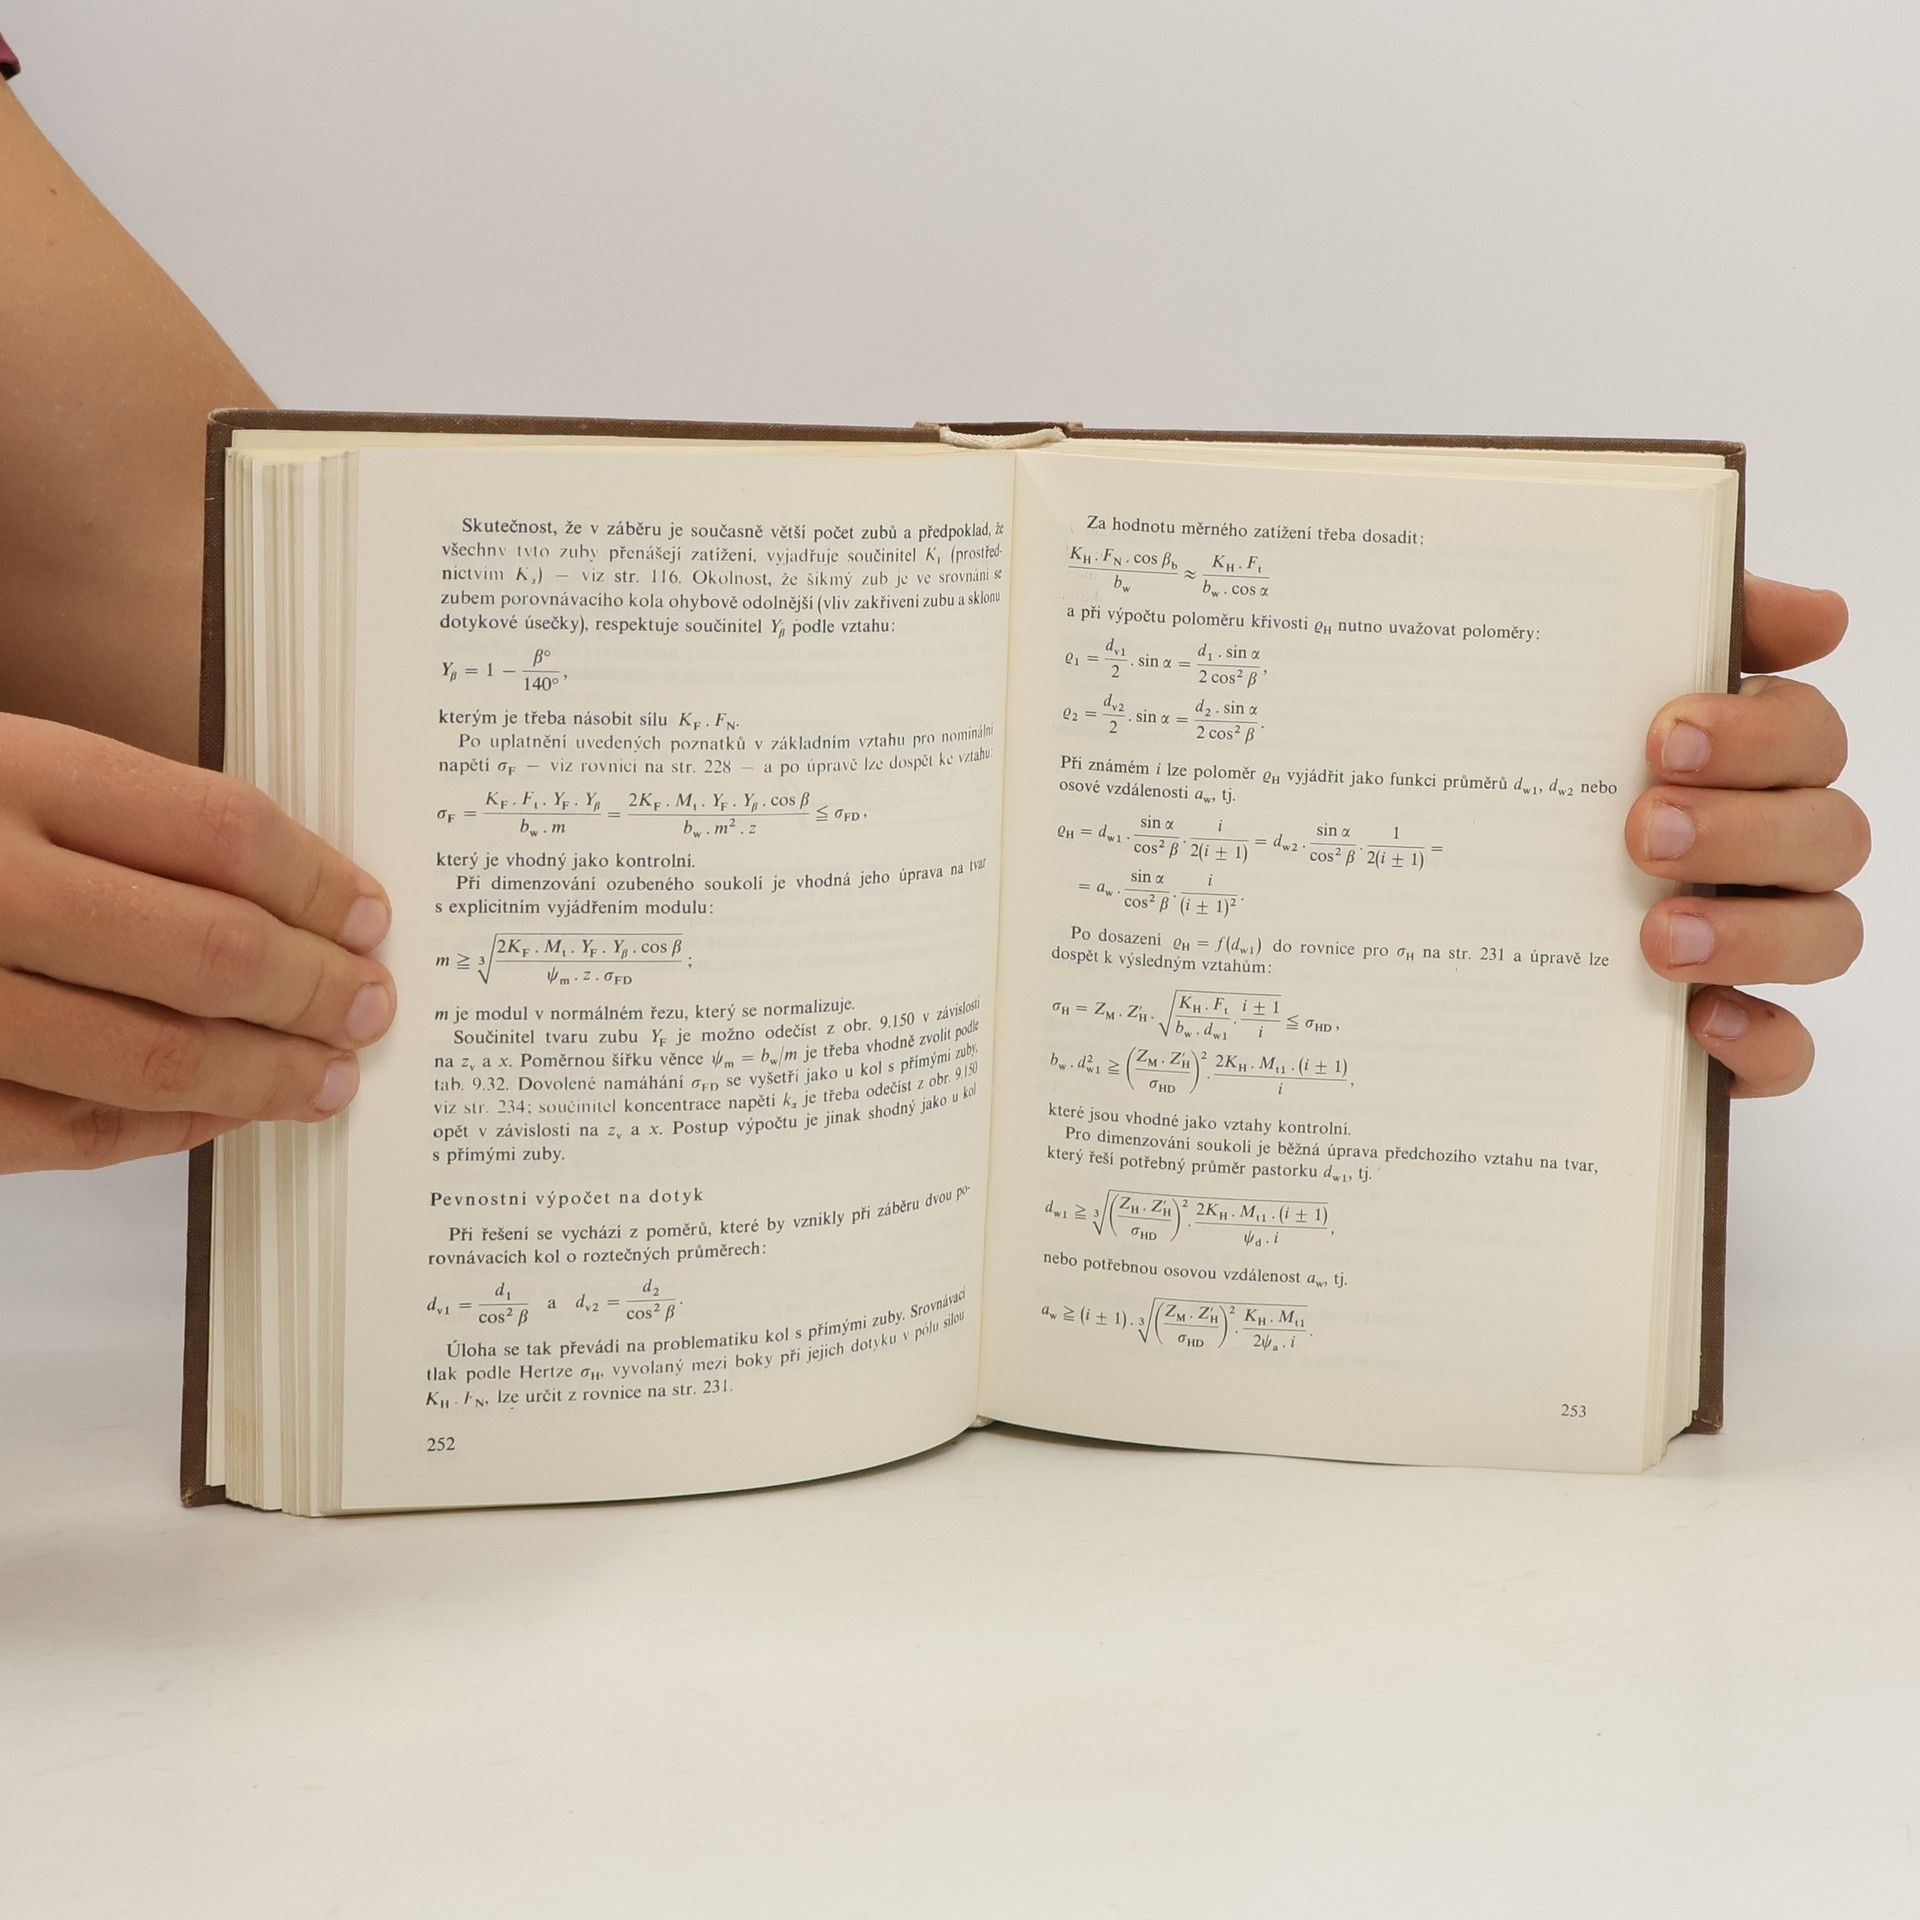 Skutečnost, že v záběru je současně větší počet zubů a předpoklad, že
všechny tyto zuby přenášejí zatížení, vyjadřuje součinitel K_I (prostřed-
nictvím K_α) — viz str. 116. Okolnost, že šikmý zub je ve srovnání se
zubem porovnávacího kola ohybově odolnější (vliv zakřivení zubu a sklonu
dotykové úsečky), respektuje součinitel Y_β podle vztahu:
Y_β = 1 − β°/140°,
kterým je třeba násobit sílu K_F . F_N.
Po uplatnění uvedených poznatků v základním vztahu pro nominální
napětí σ_F — viz rovnici na str. 228 — a po úpravě lze dospět ke vztahu:
σ_F = (K_F . F_t . Y_F . Y_β)/(b_w . m) = (2K_F . M_t . Y_F . Y_β . cos β)/(b_w . m² . z) ≦ σ_FD,
který je vhodný jako kontrolní.
Při dimenzování ozubeného soukolí je vhodná jeho úprava na tvar
s explicitním vyjádřením modulu:
m ≧ ∛((2K_F . M_t . Y_F . Y_β . cos β)/(ψ_m . z . σ_FD));
m je modul v normálném řezu, který se normalizuje.
Součinitel tvaru zubu Y_F je možno odečíst z obr. 9.150 v závislosti
na z_v a x. Poměrnou šířku věnce ψ_m = b_w/m je třeba vhodně zvolit podle
tab. 9.32. Dovolené namáhání σ_FD se vyšetří jako u kol s přímými zuby,
viz str. 234; součinitel koncentrace napětí k_α je třeba odečíst z obr. 9.150
opět v závislosti na z_v a x. Postup výpočtu je jinak shodný jako u kol
s přímými zuby.
Pevnostní výpočet na dotyk
Při řešení se vychází z poměrů, které by vznikly při záběru dvou po-
rovnávacích kol o roztečných průměrech:
d_v1 = d_1/cos² β a d_v2 = d_2/cos² β.
Úloha se tak převádí na problematiku kol s přímými zuby. Srovnávací
tlak podle Hertze σ_H, vyvolaný mezi boky při jejich dotyku v pólu silou
K_H . F_N, lze určit z rovnice na str. 231.
252
Za hodnotu měrného zatížení třeba dosadit:
(K_H . F_N . cos β_b)/b_w ≈ (K_H . F_t)/(b_w . cos α)
a při výpočtu poloměru křivosti ϱ_H nutno uvažovat poloměry:
ϱ_1 = d_v1/2 . sin α = (d_1 . sin α)/(2 cos² β),
ϱ_2 = d_v2/2 . sin α = (d_2 . sin α)/(2 cos² β).
Při známém i lze poloměr ϱ_H vyjádřit jako funkci průměrů d_w1, d_w2 nebo
osové vzdálenosti a_w, tj.
ϱ_H = d_w1 . sin α/cos² β . i/(2(i ± 1)) = d_w2 . sin α/cos² β . 1/(2(i ± 1)) =
= a_w . sin α/cos² β . i/(i ± 1)².
Po dosazení ϱ_H = f(d_w1) do rovnice pro σ_H na str. 231 a úpravě lze
dospět k výsledným vztahům:
σ_H = Z_M . Z′_H . √((K_H . F_t)/(b_w . d_w1) . (i ± 1)/i) ≦ σ_HD,
b_w . d²_w1 ≧ ((Z_M . Z′_H)/σ_HD)² . (2K_H . M_t1 . (i ± 1))/i,
které jsou vhodné jako vztahy kontrolní.
Pro dimenzování soukolí je běžná úprava předchozího vztahu na tvar,
který řeší potřebný průměr pastorku d_w1, tj.
d_w1 ≧ ∛(((Z_H . Z′_H)/σ_HD)² . (2K_H . M_t1 . (i ± 1))/(ψ_d . i)),
nebo potřebnou osovou vzdálenost a_w, tj.
a_w ≧ (i ± 1) . ∛(((Z_M . Z′_H)/σ_HD)² . (K_H . M_t1)/(2ψ_a . i)).
253